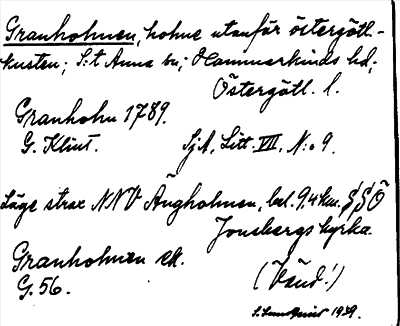 Granholmen, holme utanför östergötl.-
kusten; S:t Anna sn; Hammarkinds hd;
Östergötl. l.
Granholm 1789.
G. Klint. SjA, Litt. VII, N:o 9.
Läge strax NNV Ängholmen, bel. 9,4 km. SSO
Jonsbergs kyrka.
Granholmen ek.
G. 56. (Vänd!)
1929.